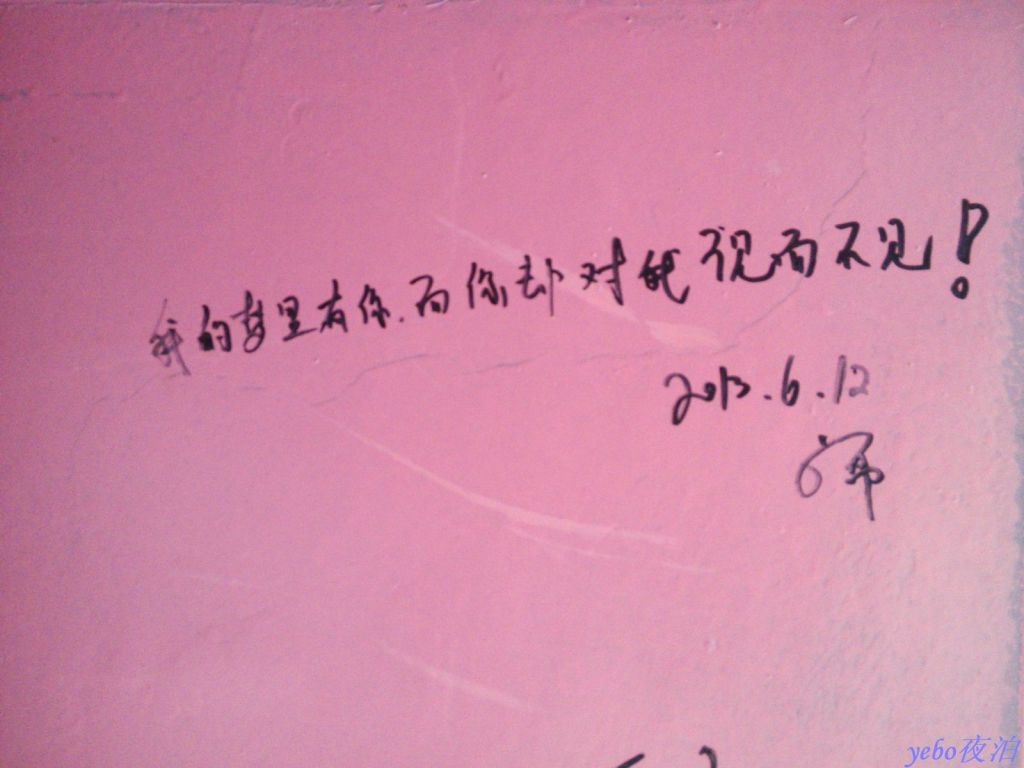 我的梦里有你.而你却对我视而不见!
2013.6.12
yebo夜泊